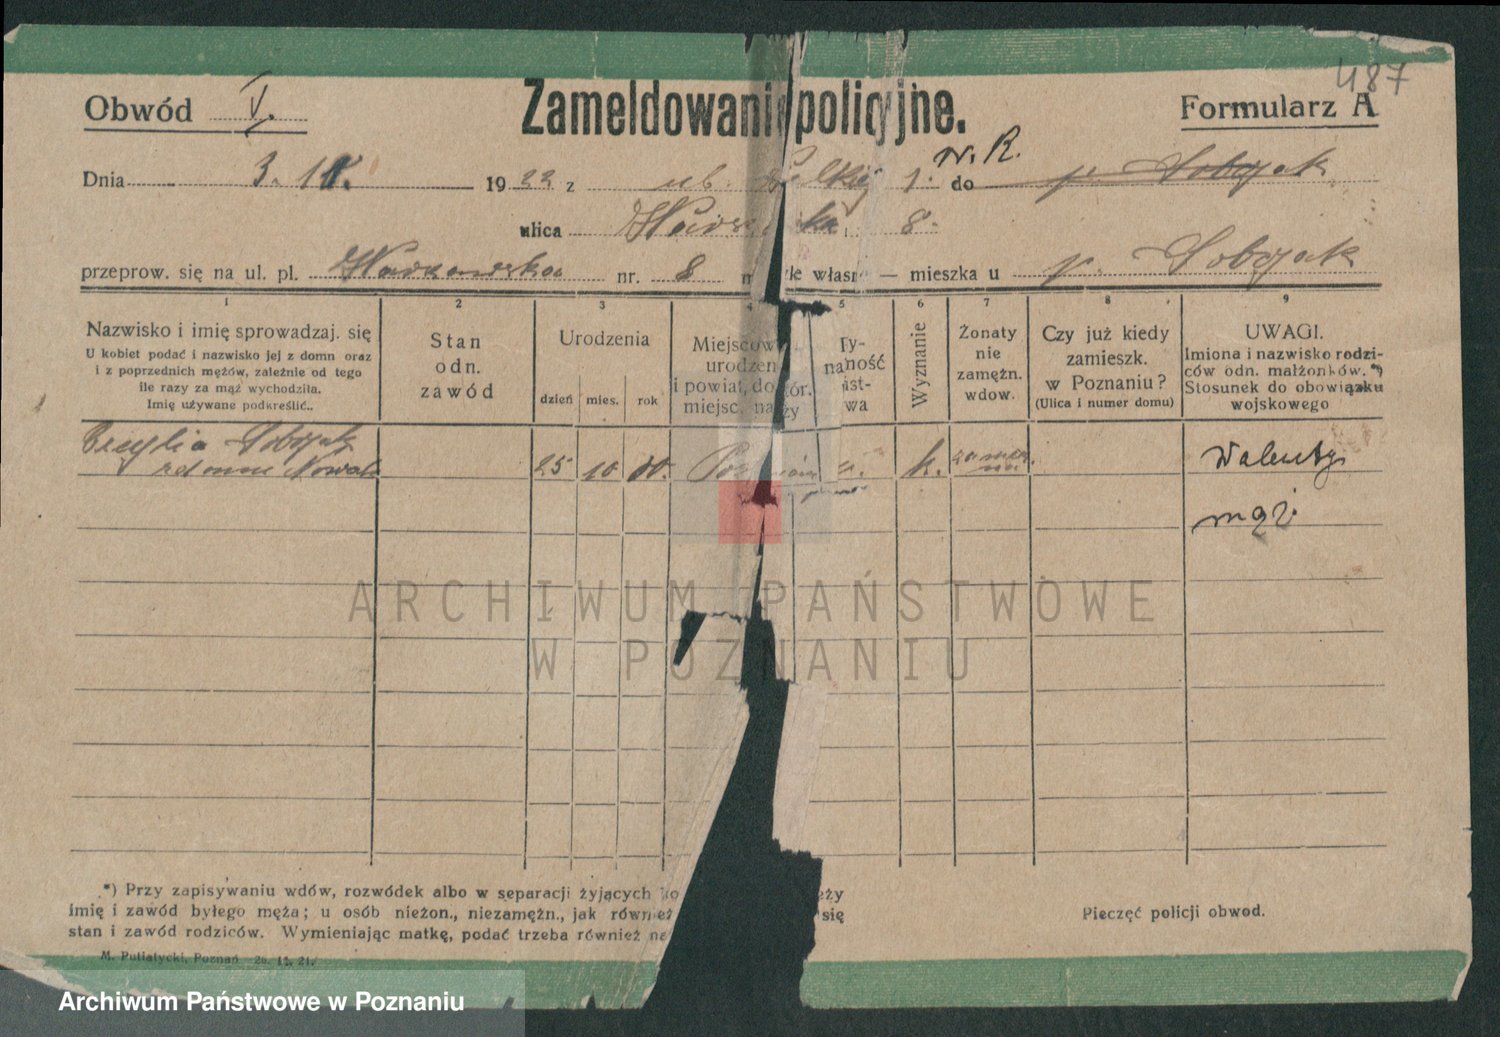 487
Obwód V.
Zameldowanie policyjne.
Formularz A
w. R.
Dnia 3. 10. 1922 z ub. 1. do p. Sobczak
ulica 8.
przeprow. się na ul. pl. Warszawska nr. 8 własne — mieszka u p. Sobczak
1 2 3 4 5 6 7 8 9
Nazwisko i imię sprowadzaj. się
U kobiet podać i nazwisko jej z domn oraz
i z poprzednich mężów, zależnie od tego
ile razy za mąż wychodziła.
Imię używane podkreślić..
Stan
odn.
zawód
Urodzenia
dzień mies. rok
Miejscow
urodzen
i powiat, do tór.
miejsc. na ży
Ty-
naność
ist-
wa
Wyznanie
Żonaty
nie
zamężn.
wdow.
Czy już kiedy
zamieszk.
w Poznaniu?
(Ulica i numer domu)
UWAGI.
Imiona i nazwisko rodzi-
ców odn. małżonków. *)
Stosunek do obowiązku
wojskowego
Sobczak
25 10 k. Walenty
z domu Nowak
mąż
ARCHIWUM PAŃSTWOWE
W POZNANIU
*) Przy zapisywaniu wdów, rozwódek albo w separacji żyjących
imię i zawód byłego męża; u osób nieżon., niezamężn., jak również się
stan i zawód rodziców. Wymieniając matkę, podać trzeba również
Pieczęć policji obwod.
M. Putiatycki, Poznań
Archiwum Państwowe w Poznaniu